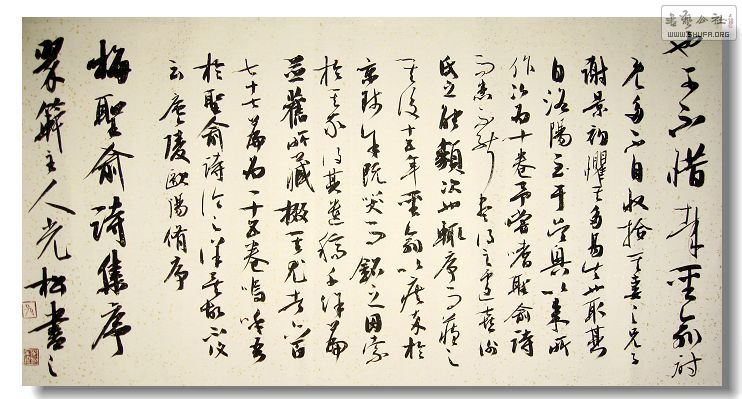 也可不惜哉聖俞詩
既多不自收拾其妻之兄子
謝景初懼其多易失也取其
自洛陽至于吳興以來所
作次為十卷予嘗嗜聖俞詩
而患不能盡得之遽喜謝
氏之能類次也輒序而藏之
其後十五年聖俞以疾卒於
京師余既哭而銘之因索
於其家得其遺稿千餘篇
並舊所藏掇其尤者六百
七十七篇為一十五卷嗚呼吾
於聖俞詩論之詳矣故不復
云廬陵歐陽脩序
梅聖俞詩集序
主人光松書之
书艺公社
WWW.SHUFA.ORG